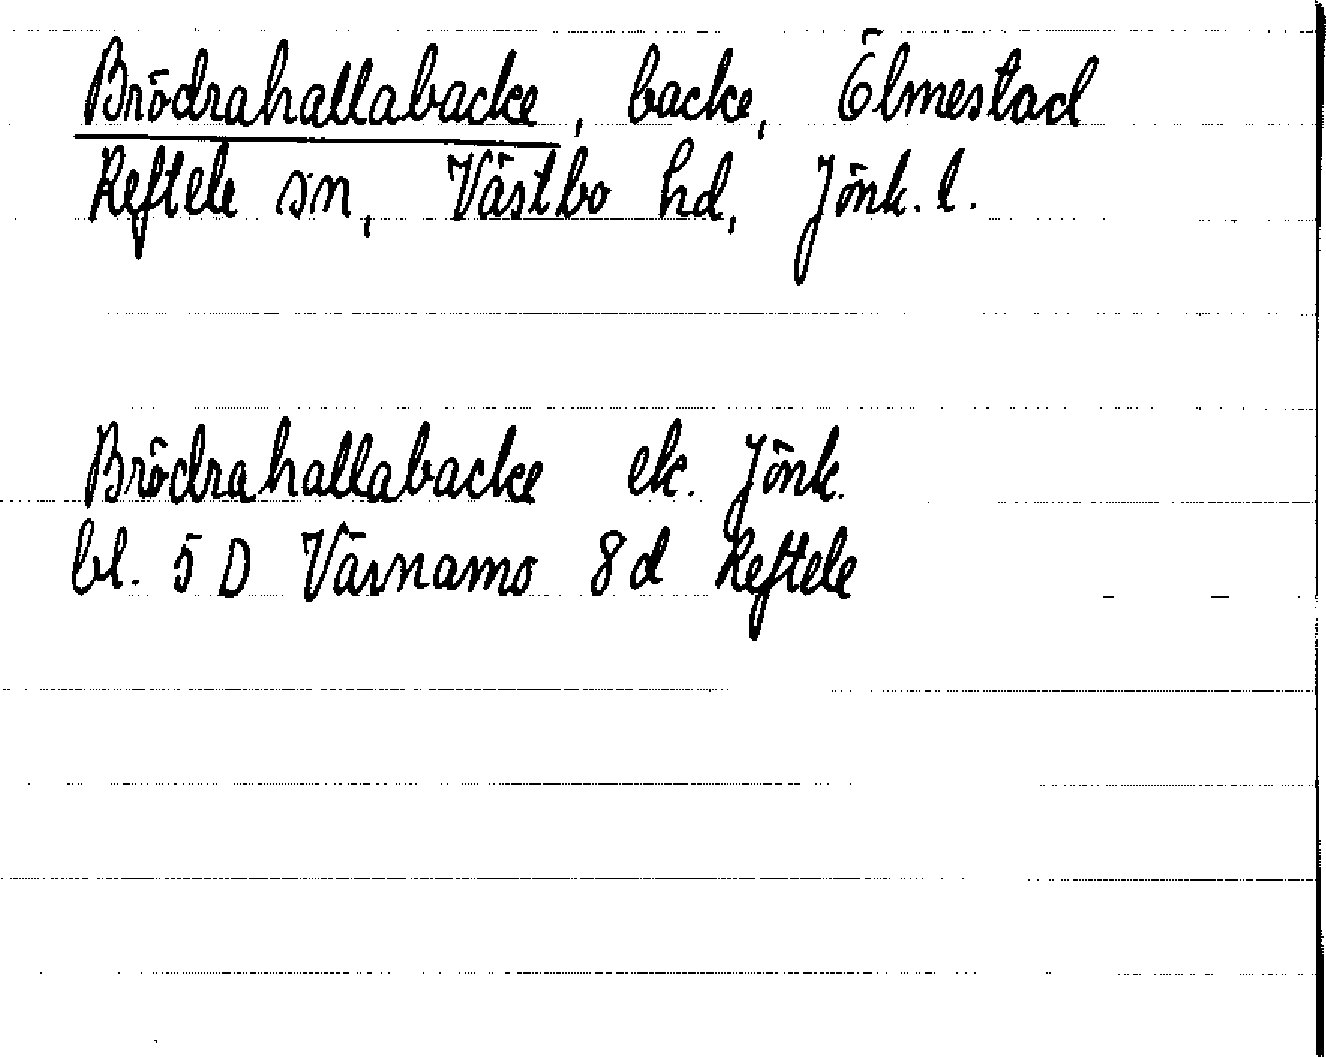 Brödrahallabacke, backe, Ölmestad
Reftele sn, Västbo hd, Jönk. l.
Brödrahallabacke ek. Jönk.
bl. 5 D Värnamo 8d Reftele